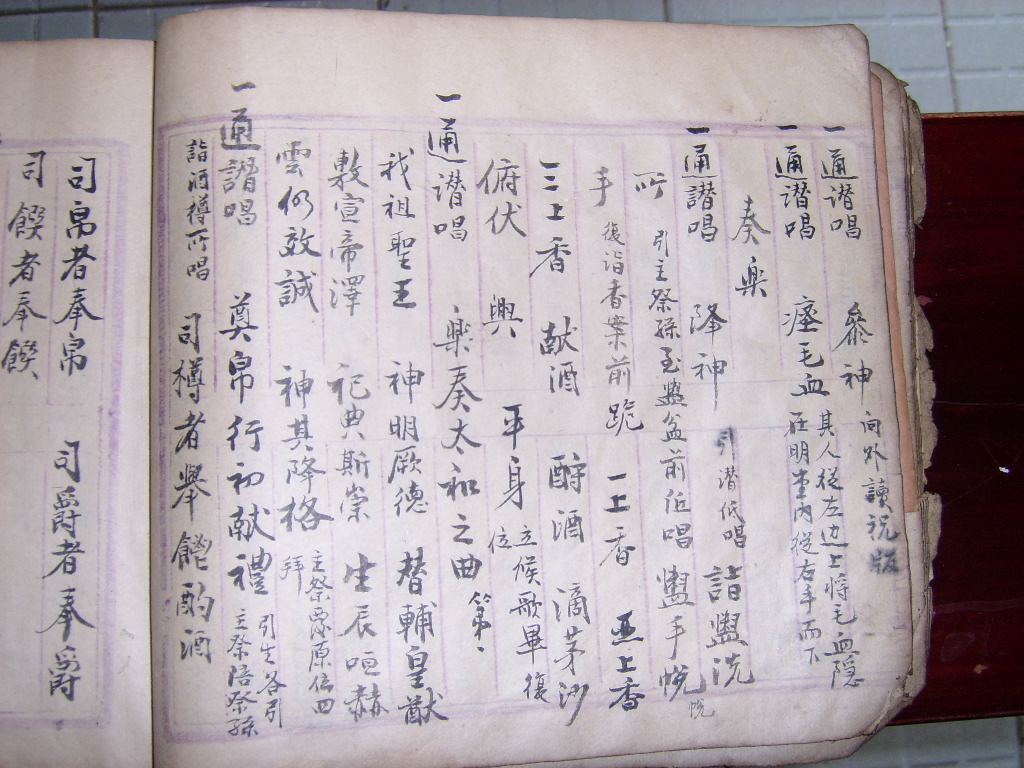 一通譛唱 參神 向外讀祝版
一通譛唱 瘞毛血 其人從左边上将毛血隠
在明堂内從右手而下
奏楽
一通譛唱 降神 引譛低唱 詣盥洗
所 引主祭孫至盥盆前低唱 盥手 帨
手 復詣香案前 跪 一上香 亜上香
三上香 献酒 酹酒 滴茅沙
俯伏 興 平身 立候歌畢復
位
一通譛唱 楽奏太和之曲 第一
我祖聖王 神明厥德 替輔皇猷
敷宣帝澤 祀典斯崇 生辰咺赫
雲礽效誠 神其降格 主祭孫原位四
拜
一通譛唱 奠帛行初献禮 引生各引
主祭陪祭孫
詣酒樽所唱 司樽者舉 酌酒
司帛者奉帛 司爵者奉爵
司饌者奉饌